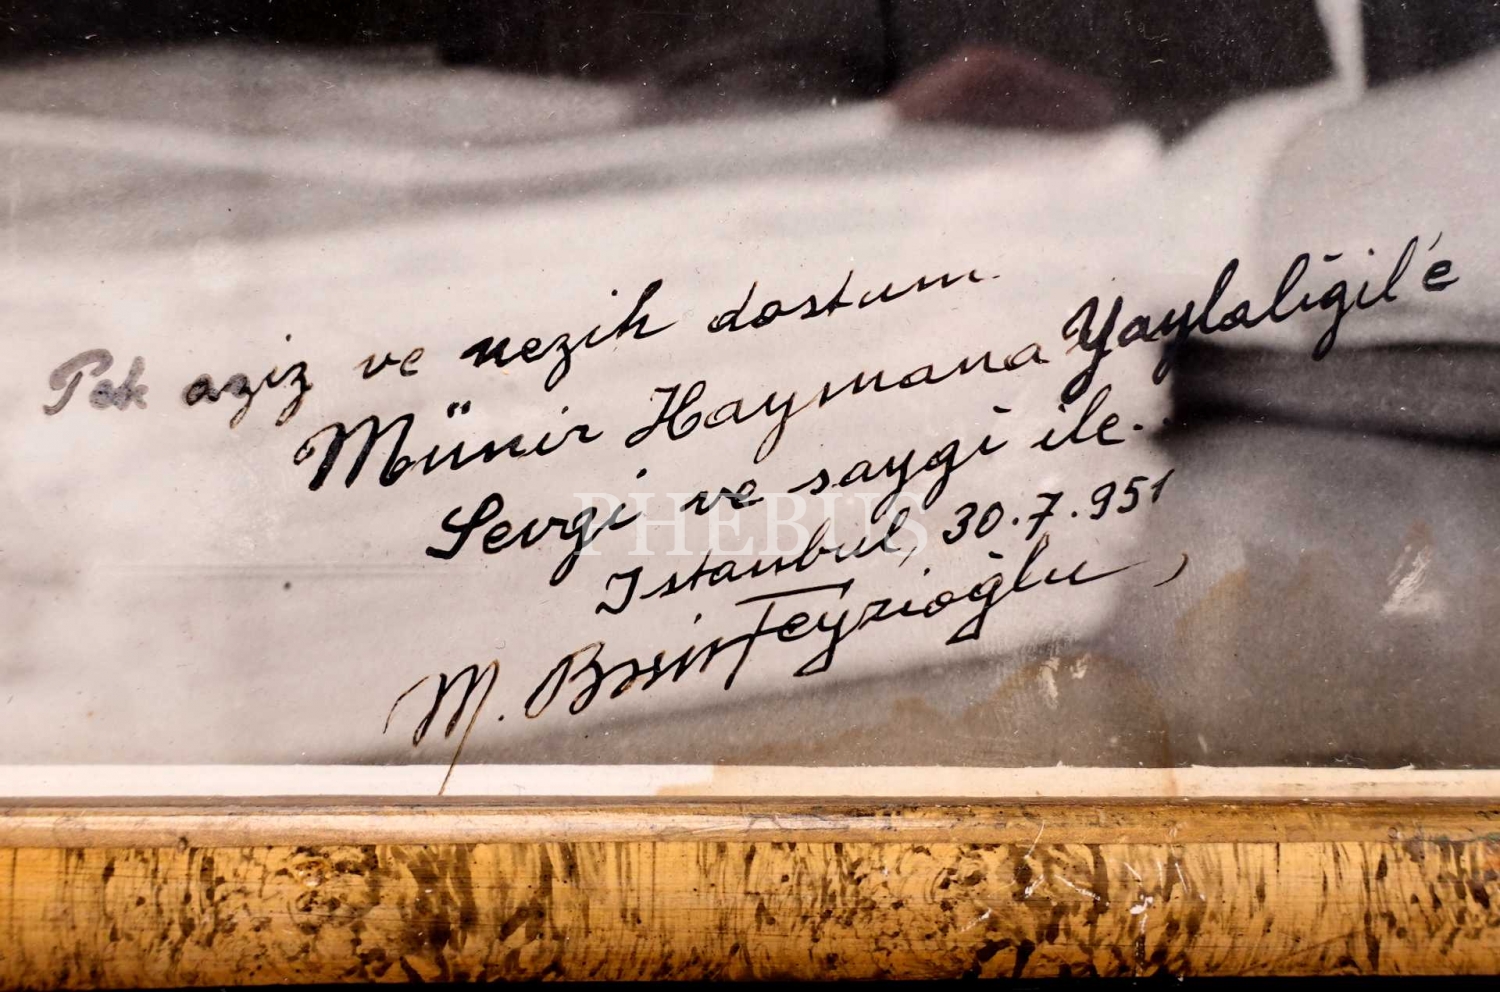 Pek aziz ve nezih dostum
Münir Haymana Yaylaligil'e
Sevgi ve saygi ile..
PHEBUS
Istanbul, 30.7.951
M. Besim Feyzioğlu